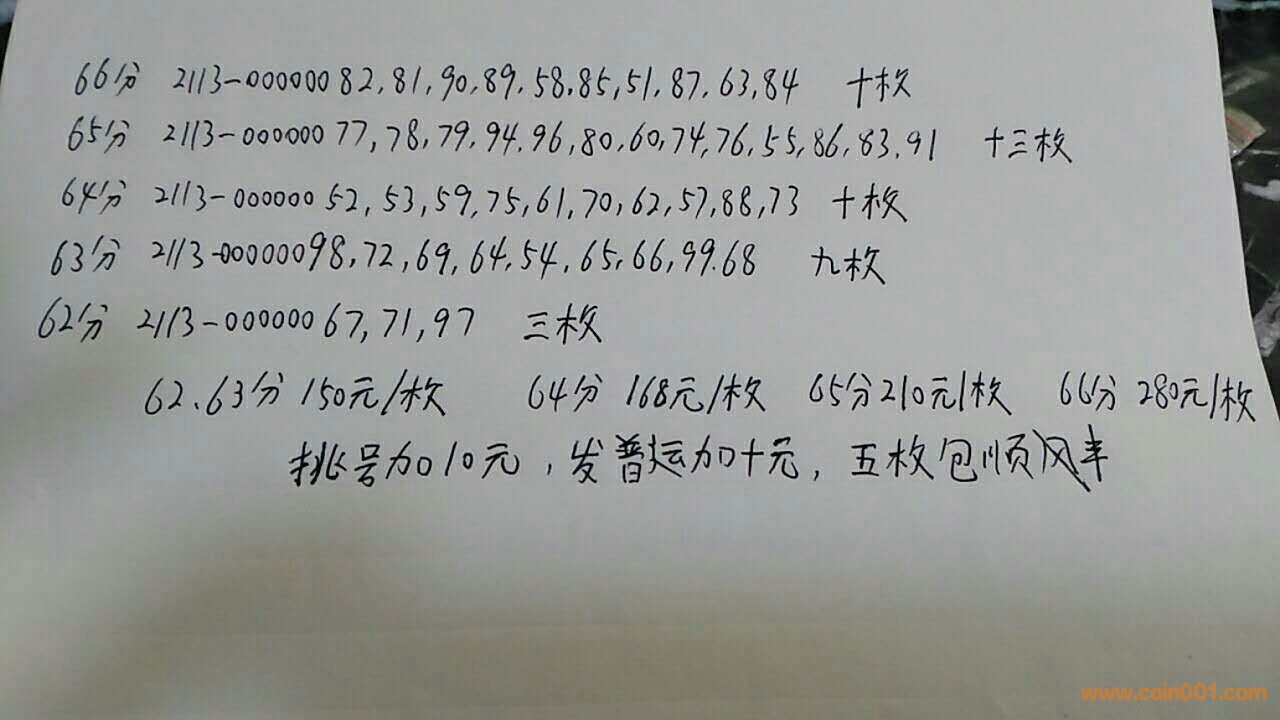 66分 2113-00000082,81,90,89.58.85,51.87.63,84 十枚
65分 2113-00000077,78,79.94.96,80.60,74,76.55,86,83.91 十三枚
64分 2113-00000052,53,59,75,61,70,62,57,88,73 十枚
63分 2113-00000098,72,69,64.54,65,66,99.68 九枚
62分 2113-00000067,71,97 三枚
62.63分150元/枚 64分168元/枚 65分210元/枚 66分280元/枚
挑号加10元,发普运加十元,五枚包顺风丰
www.coin001.com